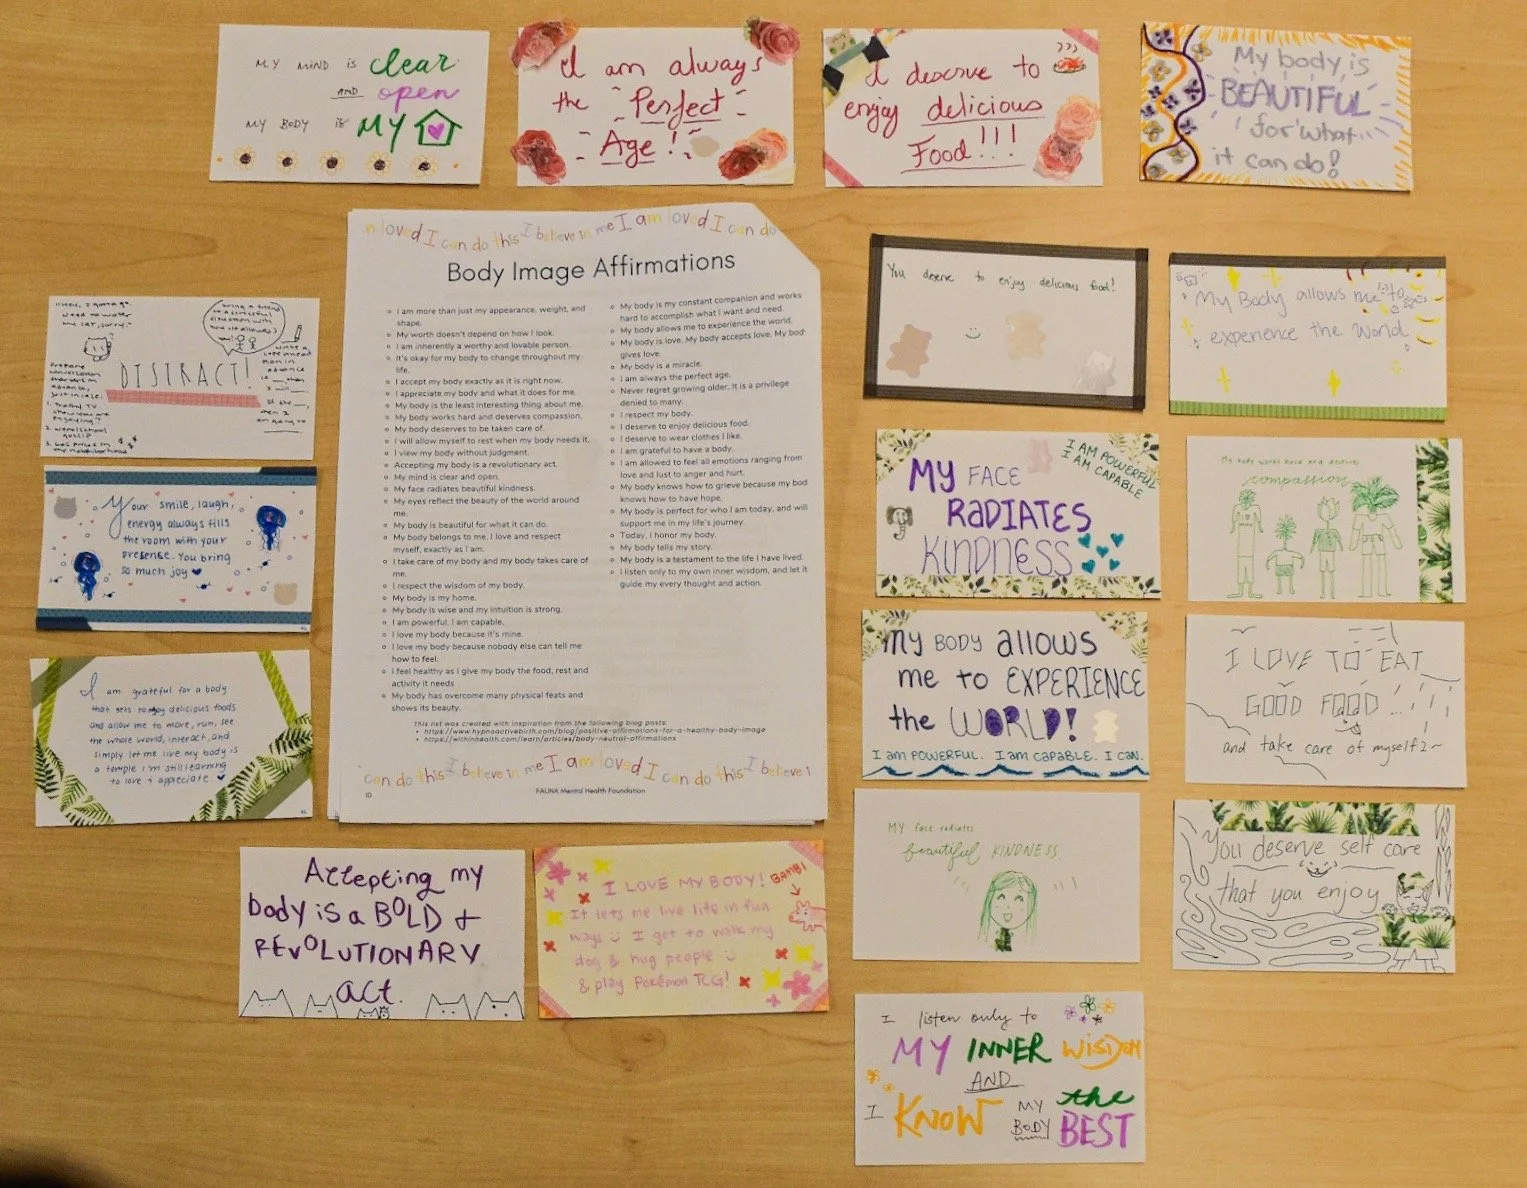 MY MIND IS clear
AND open
MY BODY IS MY
I am always
the Perfect
Age!
I deserve to
enjoy delicious
Food!!!
My body is
BEAUTIFUL
for what
it can do!
n loved I can do this I believe in me I am loved I can do
Body Image Affirmations
I am more than just my appearance, weight, and
shape.
My worth doesn't depend on how I look.
I am inherently a worthy and lovable person.
It's okay for my body to change throughout my
life.
I accept my body exactly as it is right now.
I appreciate my body and what it does for me.
My body is the least interesting thing about me.
My body works hard and deserves compassion.
My body deserves to be taken care of.
I will allow myself to rest when my body needs it.
I view my body without judgment.
Accepting my body is a revolutionary act.
My mind is clear and open.
My face radiates beautiful kindness.
My eyes reflect the beauty of the world around
me.
My body is beautiful for what it can do.
My body belongs to me. I love and respect
myself, exactly as I am.
I take care of my body and my body takes care of
me.
I respect the wisdom of my body.
My body is my home.
My body is wise and my intuition is strong.
I am powerful. I am capable.
I love my body because it's mine.
I love my body because nobody else can tell me
how to feel.
I feel healthy as I give my body the food, rest and
activity it needs
My body has overcome many physical feats and
shows its beauty.
My body is my constant companion and works
hard to accomplish what I want and need.
My body allows me to experience the world.
My body is love. My body accepts love. My bod
gives love.
My body is a miracle.
I am always the perfect age.
Never regret growing older. It is a privilege
denied to many.
I respect my body.
I deserve to enjoy delicious food.
I deserve to wear clothes I like.
I am grateful to have a body.
I am allowed to feel all emotions ranging from
love and lust to anger and hurt.
My body knows how to grieve because my bod
knows how to have hope.
My body is perfect for who I am today, and will
support me in my life's journey.
Today, I honor my body.
My body tells my story.
My body is a testament to the life I have lived.
I listen only to my own inner wisdom, and let it
guide my every thought and action.
This list was created with inspiration from the following blog posts:
https://www.hypnoactivebirth.com/blog/positive-affirmations-for-a-healthy-body-image
https://withinhealth.com/learn/articles/body-neutral-affirmations
can do this I believe in me I am loved I can do this I believe i
10
FALINA Mental Health Foundation
You deserve to enjoy delicious food!
My Body allows me to
experience the World
need to water
my cat, sorry."
bring a friend
to a stressful
situation with
you (if allowed)
DISTRACT!
Prepare
conversation
starters in
advance,
just in case.
write a
plan in
advance
I will
1. 
show you are
enjoying?
2. 
gossip
3. 
the neighborhood
Your smile, laugh,
energy always fills
the room with your
presence. You bring
so much joy
I am grateful for a body
that gets to enjoy delicious foods
and allow me to move, run, see
the whole world, interact, and
simply let me live. My body is
a temple I'm still learning
to love + appreciate.
MY FACE
RADIATES
KINDNESS
I AM POWERFUL
I AM CAPABLE
My body works hard and deserves
compassion
MY BODY allows
me to EXPERIENCE
the WORLD!
I am POWERFUL. I am capable. I can.
I LOVE TO EAT
GOOD FOOD...
and take care of myself 2~
MY face radiates
beautiful KINDNESS.
You deserve self care
that you enjoy
Accepting my
body is a BOLD +
REVOLUTIONARY
act.
I LOVE MY BODY!
BAMBI
It lets me live life in fun
ways I get to walk my
dog & hug people
& play Pokémon TCG!
I listen only to
MY INNER WISDOM
AND
I KNOW MY BODY the BEST